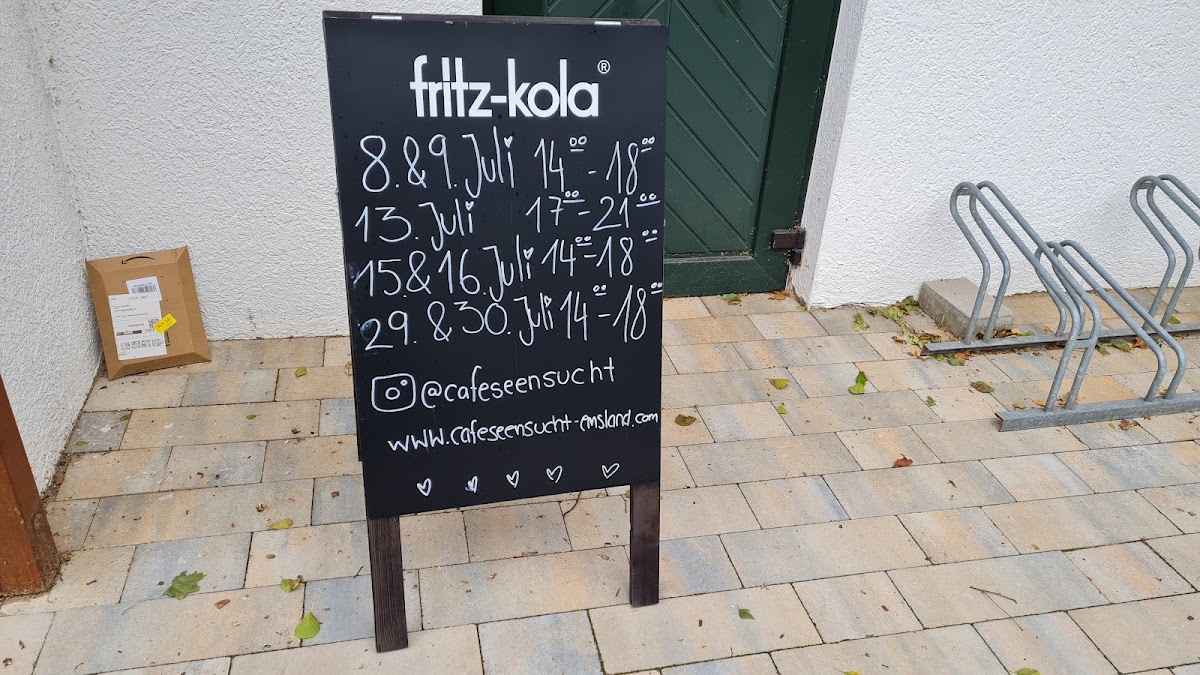 fritz-kola®
8. & 9. Juli 14⁰⁰ - 18⁰⁰
13. Juli 17⁰⁰ - 21⁰⁰
15. & 16. Juli 14⁰⁰ - 18⁰⁰
29. & 30. Juli 14⁰⁰ - 18⁰⁰
@cafeseensucht
www.cafeseensucht-emsland.com